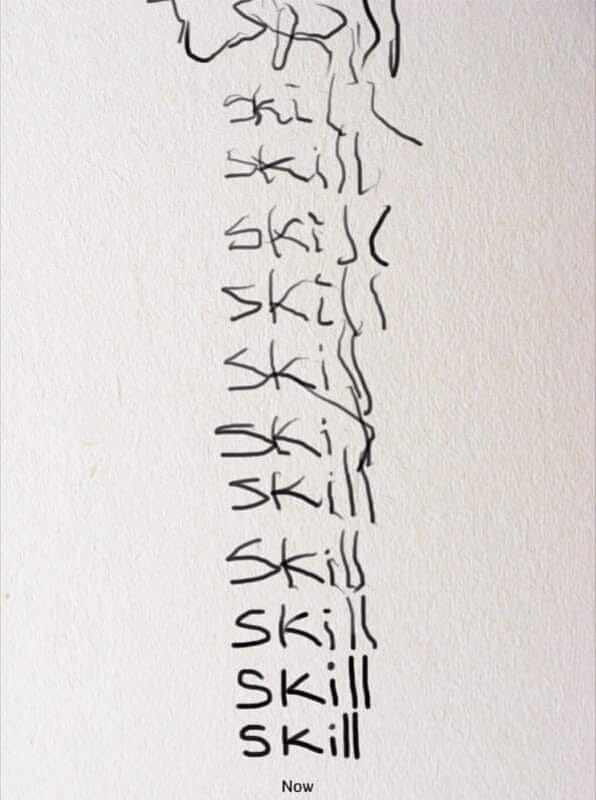 ski
skill
ski
ski
ski
ski
skill
skill
skill
skill
skill
Now